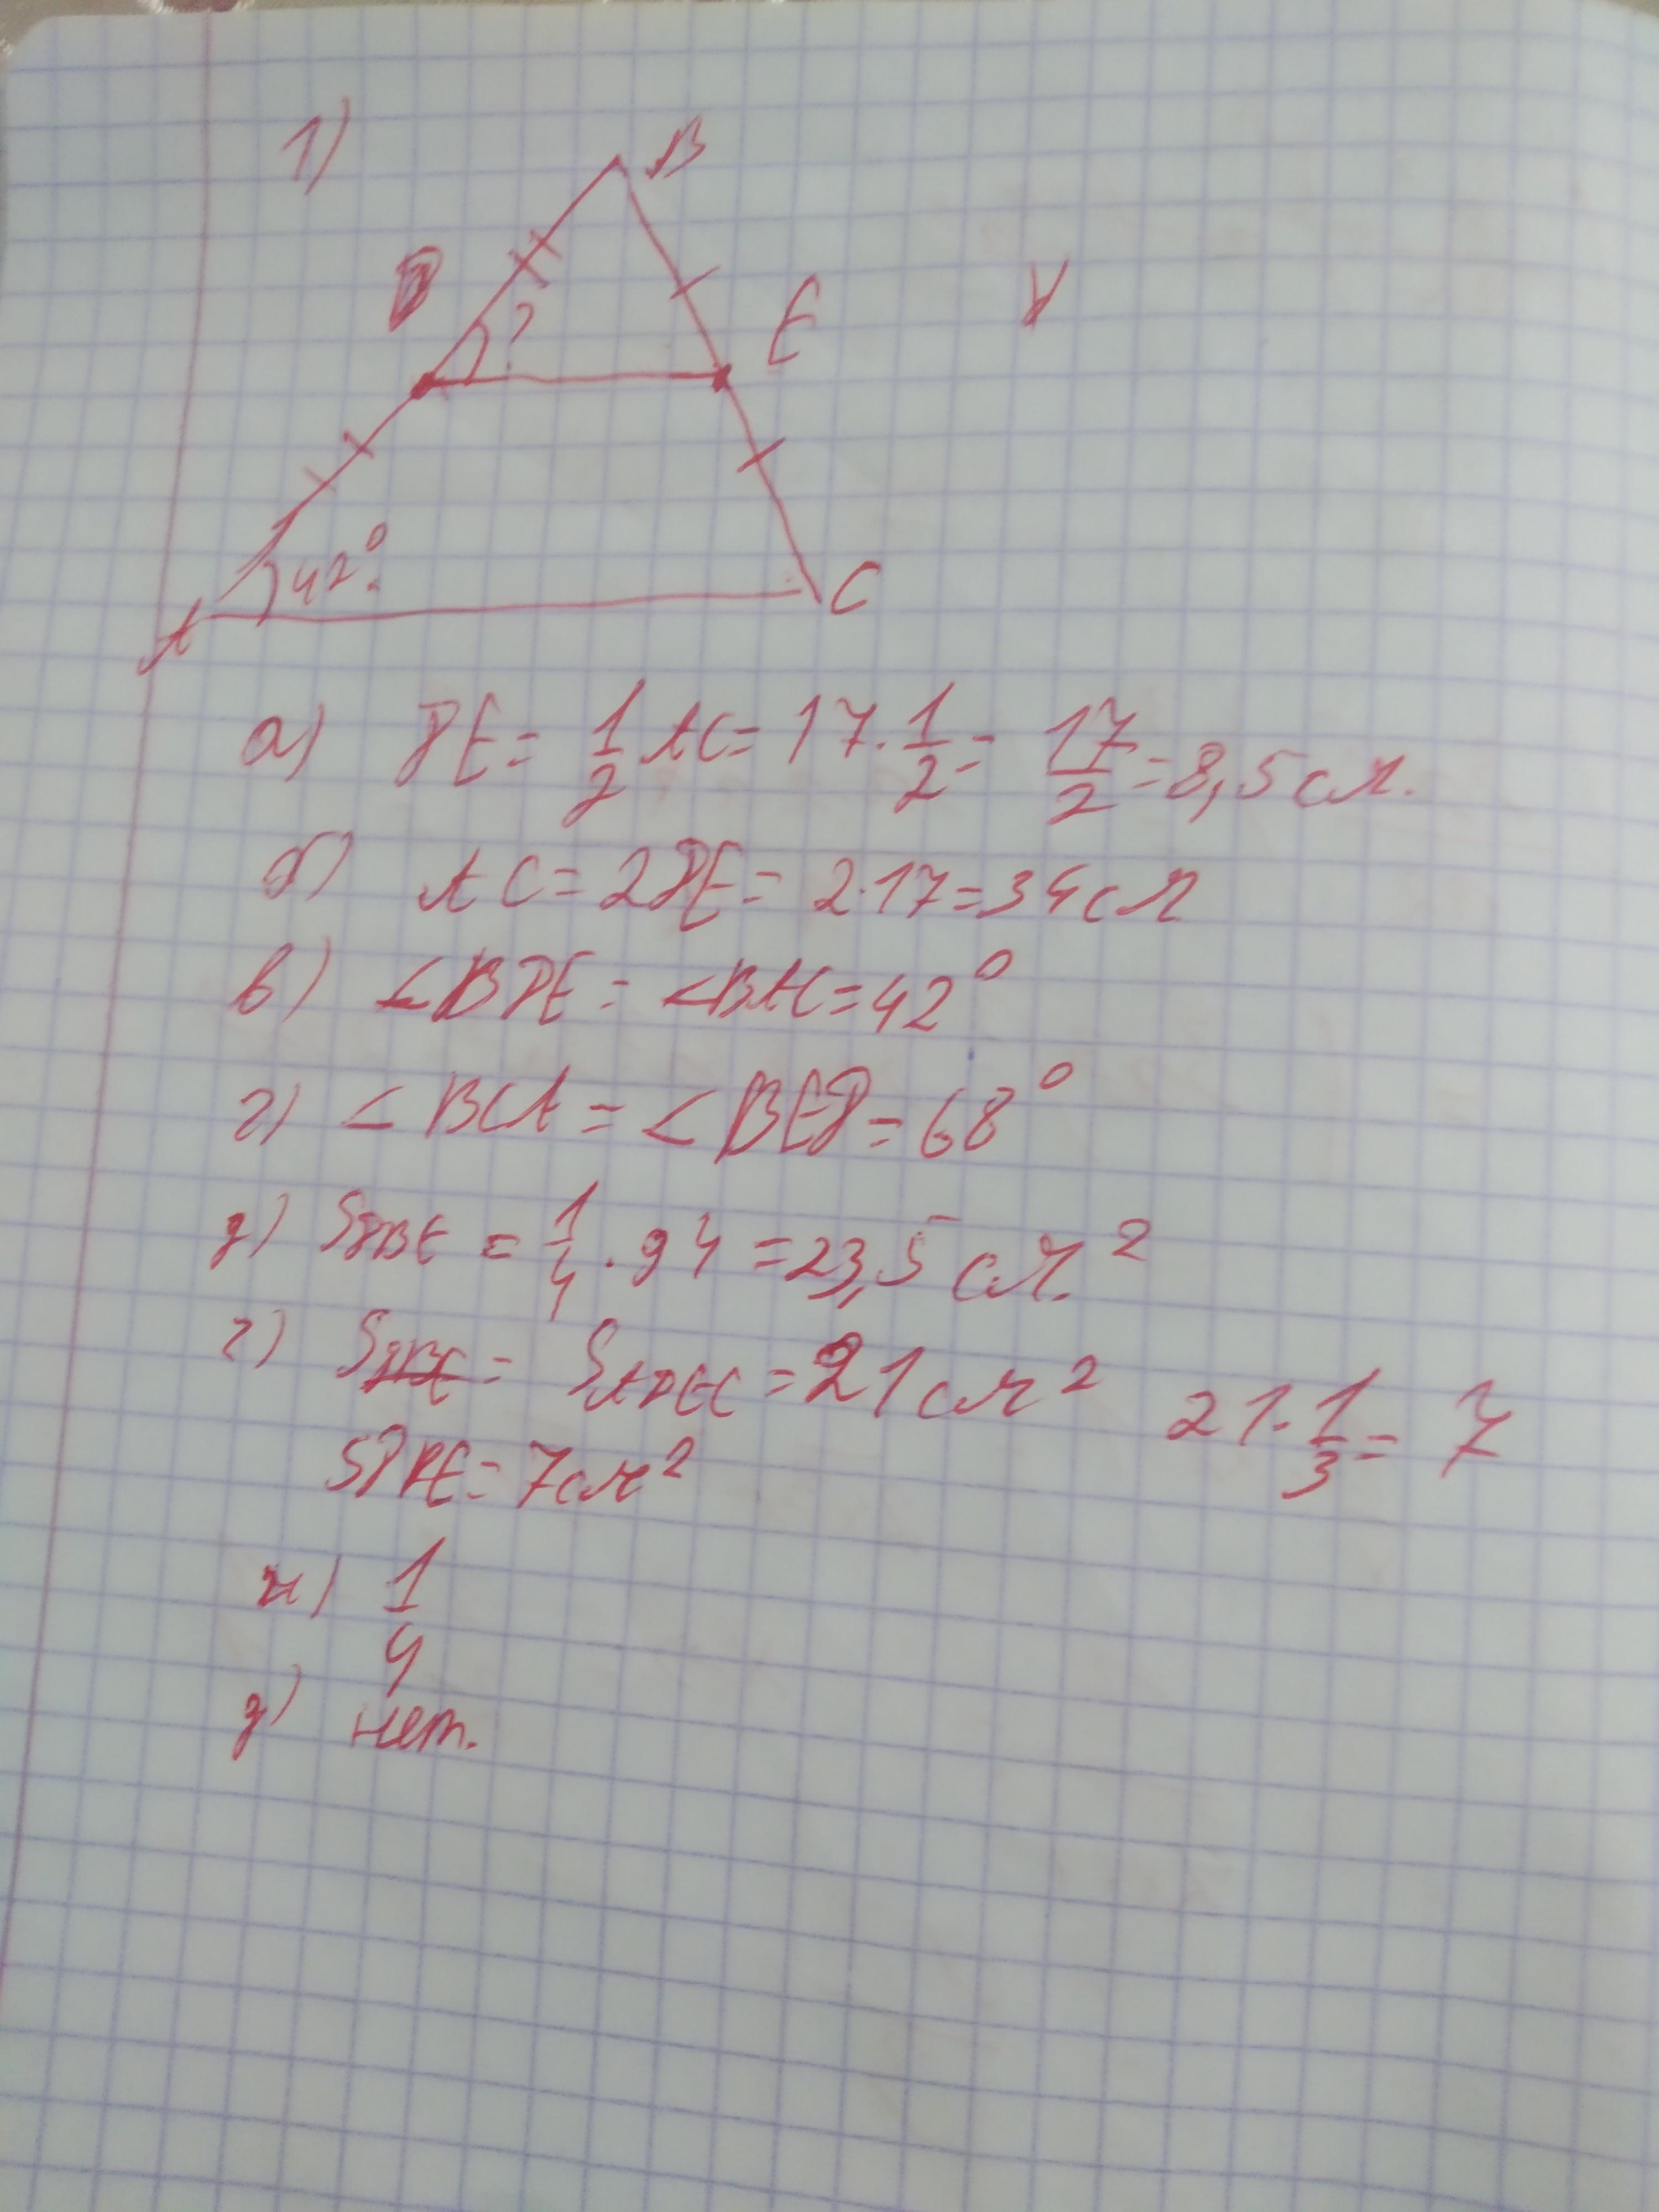 1)
B
D
E
?
42°
A
C
а) DE = 1/2 AC = 17 · 1/2 = 17/2 = 8,5 см.
б) AC = 2DE = 2·17 = 34 см
в) ∠BDE = ∠BAC = 42°
г) ∠BCA = ∠BED = 68°
д) SDBE = 1/4 · 94 = 23,5 см.²
г) SADEC = 21 см² 21 · 1/3 = 7
SDBE = 7 см²
ж) 1/4
з) нет.